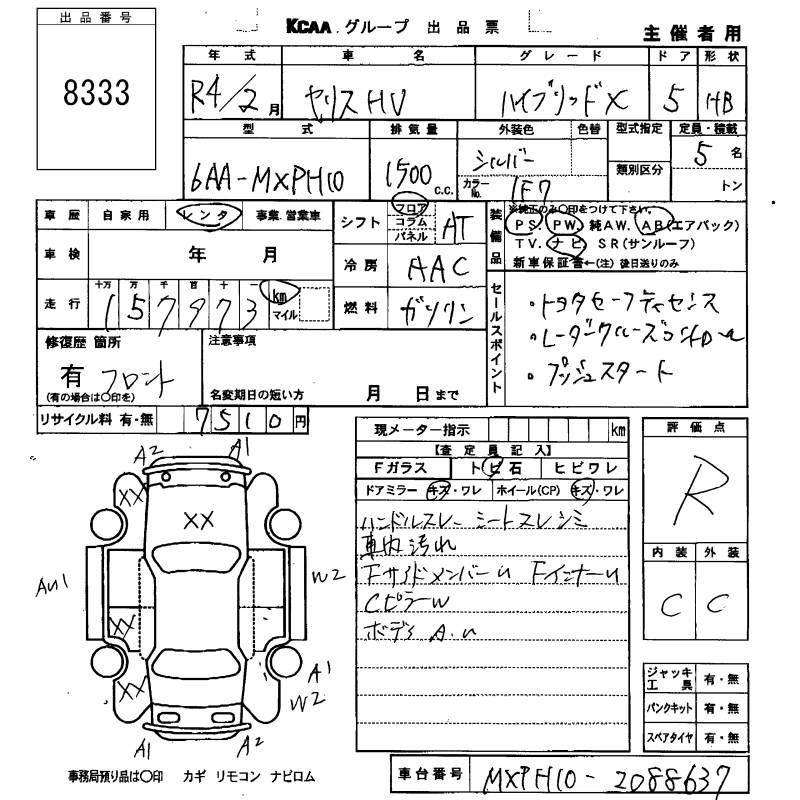 出品番号
8333
KCAA グループ 出品票
主催者用
年式 車名 グレード ドア 形状
R4/2月 ヤリスHV ハイブリッドX 5 HB
型式 排気量 外装色 色替 型式指定 定員・積載
6AA-MXPH10 1500 c.c. シルバー 類別区分 5名
カラーNo. 1F7 トン
車歴 自家用 レンタ 事業.営業車
シフト フロア コラム パネル AT
装備品 ※純正のみ〇印をつけて下さい。
PS. PW. 純AW. AB(エアバック)
TV. ナビ SR(サンルーフ)
新車保証書←(注) 後日送りのみ
車検 年 月
冷房 AAC
走行 十万 万 千 百 十 一
157973 km マイル
燃料 ガソリン
セールスポイント
・トヨタセーフティセンス
・レーダークルーズコントロール
・プッシュスタート
修復歴 箇所
有 フロント
(有の場合は〇印を)
注意事項
名変期日の短い方 月 日まで
リサイクル料 有・無 7510円
現メーター指示 km
【査定員記入】
Fガラス トビ石 ヒビワレ
ドアミラー キズ・ワレ ホイール(CP) キズ・ワレ
ハンドルスレ シートスレシミ
車内汚れ
FサイドメンバーU FインナーU
CピラーW
ボディ A.U
評価点
R
内装 外装
C C
ジャッキ工具 有・無
パンクキット 有・無
スペアタイヤ 有・無
A2 A1
XX
XX
AU1
W2
XX
XX
A1
W2
A1 A2
事務局預り品は〇印 カギ リモコン ナビロム
車台番号 MXPH10-2088637